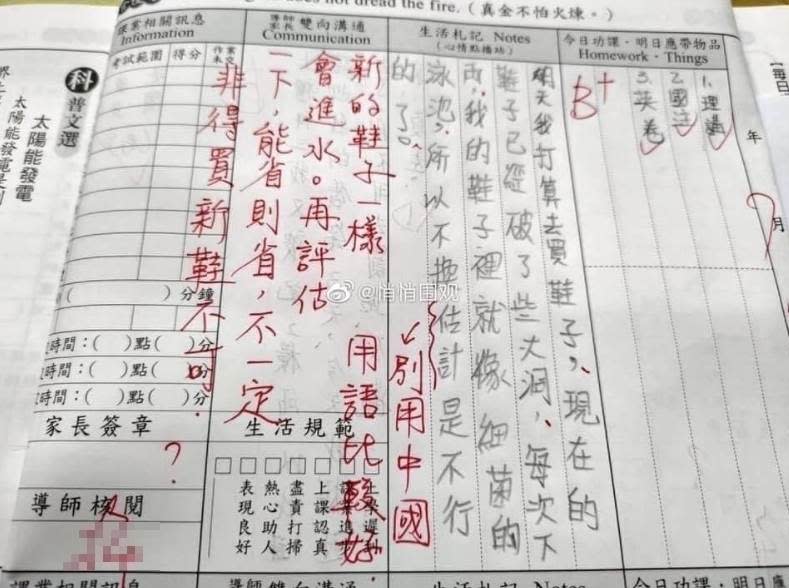 not dread the fire. (真金不怕火煉。)
今日功課・明日應帶物品
Homework・Things
年
月
1. 理講
2. 國注
3. 英卷
B+
生活札記 Notes
(心情點播站)
明天我打算去買鞋子，現在的
鞋子已經破了些大洞，每次下
雨，我的鞋子裡就像細菌的
泳池，所以不換估計是不行
的了。
別用中國
用語比較好.
導師家長 雙向溝通
Communication
新的鞋子一樣
會進水。再評估
一下，能省則省，不一定
非得買新鞋不可.
生活規範
上課認真
盡責打掃
熱心助人
表現良好
課業相關訊息
Information
考試範圍
得分
作業未交
( )分鐘
時間：( )點( )分
時間：( )點( )分
時間：( )點( )分
家長簽章
?
導師核閱
科普文選
太陽能發電
太陽能發電是利
@悄悄围观
課業相關訊息
導師 雙向溝通
生活札記 Notes
今日功課・明日應